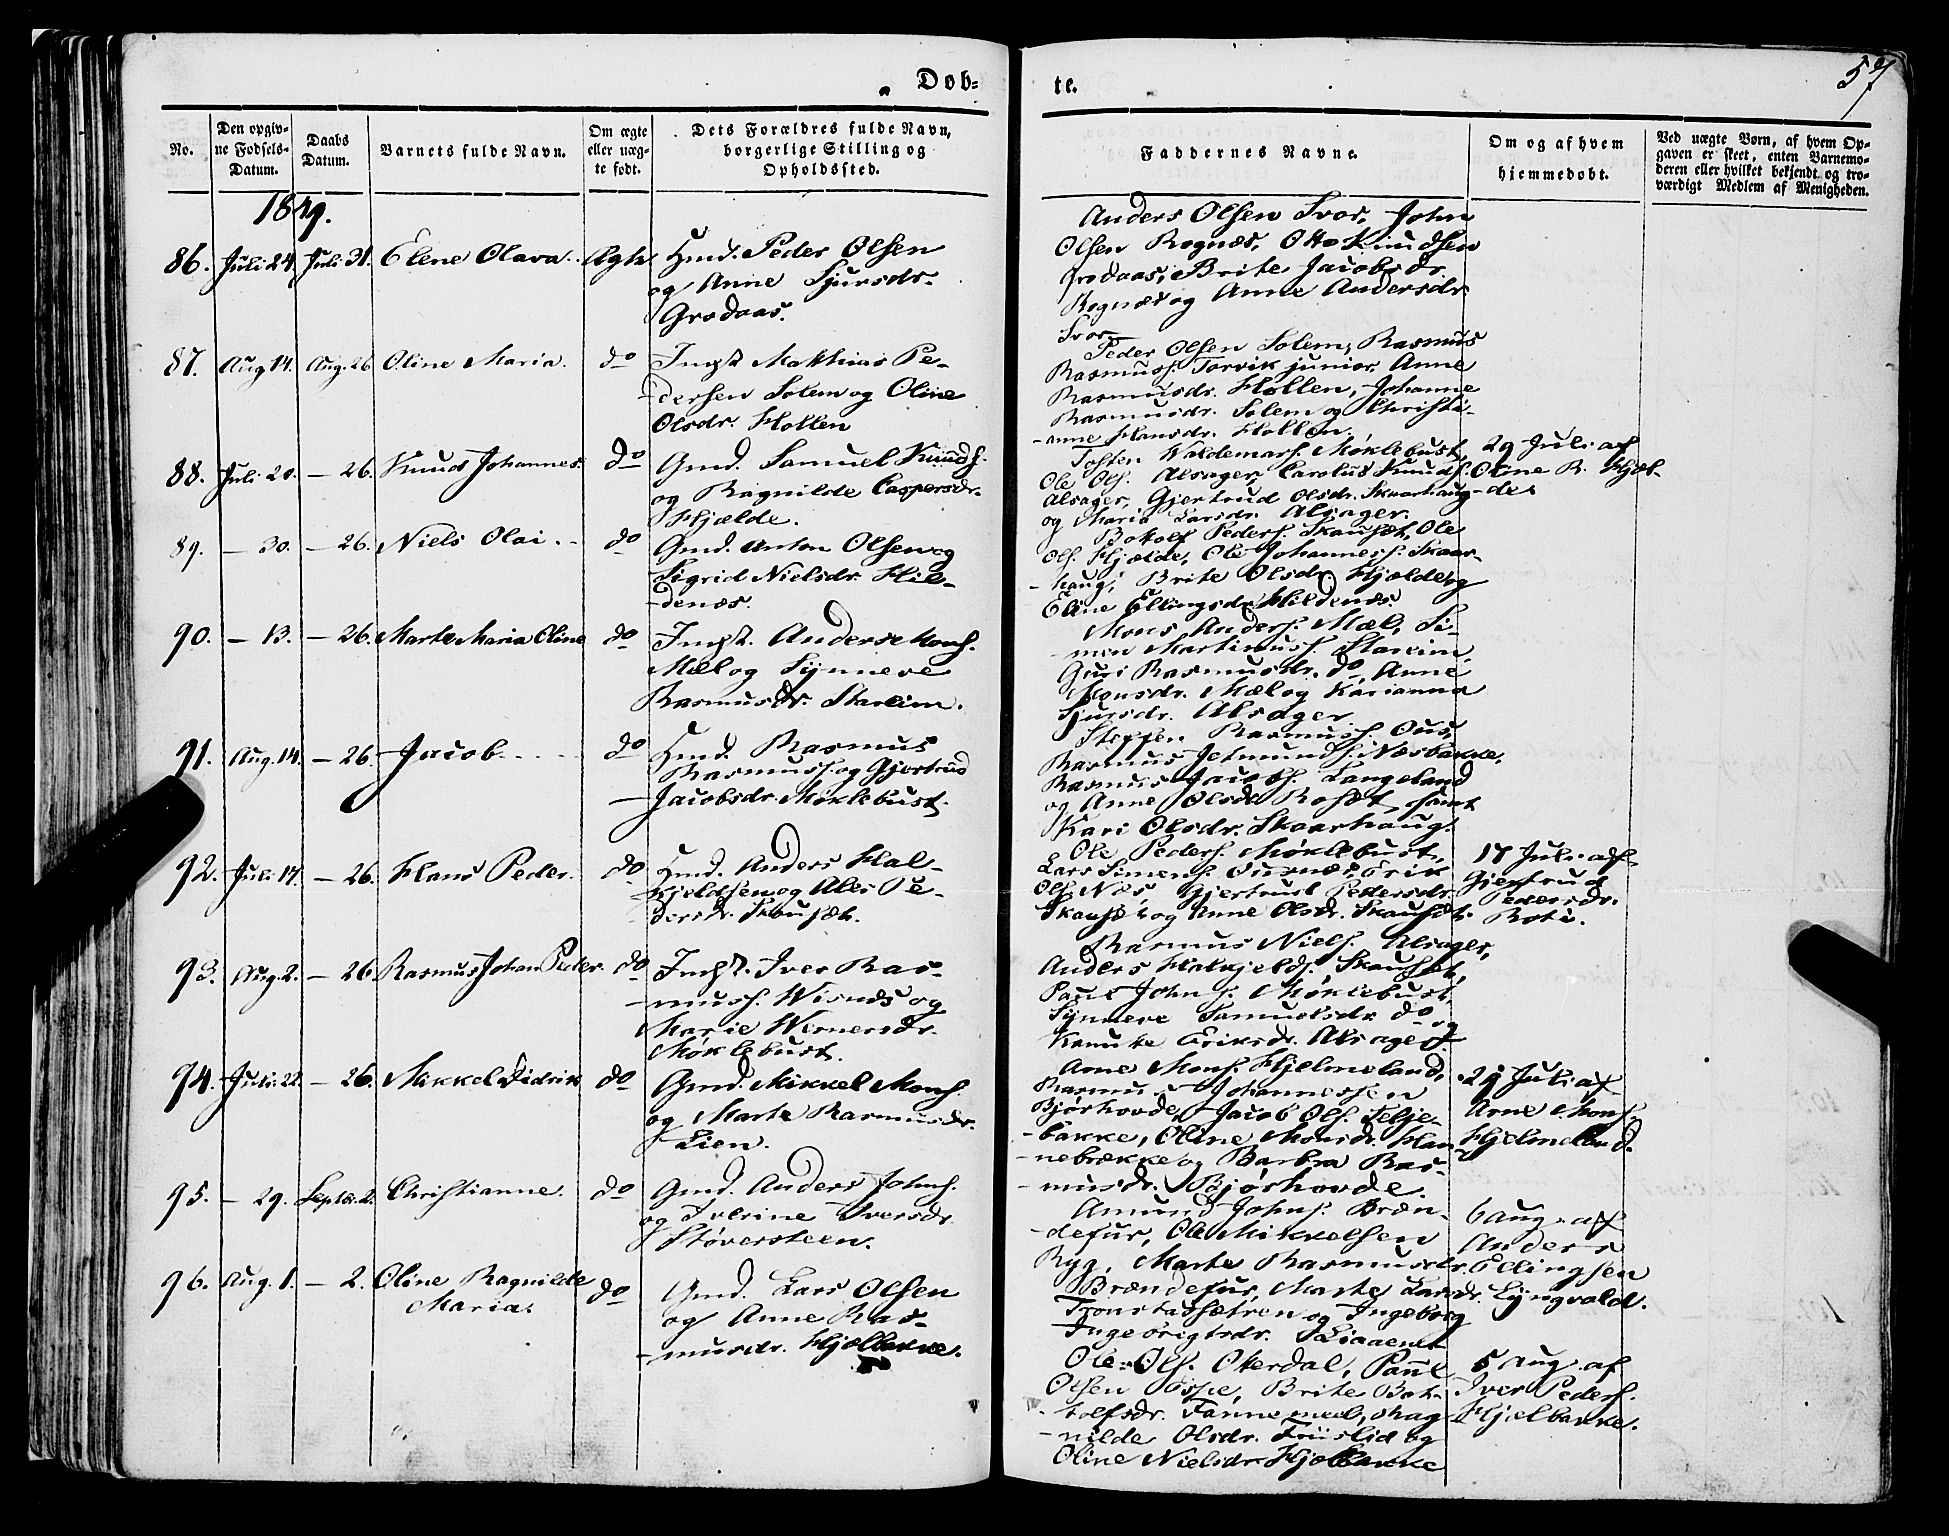 Døb-
te.
57
No.
Den opgiv-
ne Fødsels-
Datum.
Daabs
Datum.
Barnets fulde Navn.
Om ægte
eller uæg-
te født.
Dets Forældres fulde Navn,
borgerlige Stilling og
Opholdssted.
Faddernes Navne.
Om og af hvem
hjemmedøbt.
Ved uægte Børn, af hvem Op-
gaven er skeet, enten Barnemo-
deren eller hvilket bekjendt og tro-
værdigt Medlem af Menigheden.
1849.
86. Juli 24. Juli 31. Elene Olava Ægte
Hmd. Peder Olsen
og Anne Sjursdr.
Grodaas.
Anders Olsen Svor, John
Olsen Rognæs, Otto Knudsen
Grodaas, Brite Jacobsdr.
Rognæs og Anne Andersdr.
Svor
87. Aug 14. Aug. 26 Oline Maria. do
Ingst. Matthias Pe-
dersen Solem og Oline
Olsdr. Hollen
Peder Olsen Solem, Rasmus
Rasmuss. Torvik junior, Anne
Rasmusdr. Hollen, Johanne
Rasmusdr. Solem og Christi-
anne Hansdr. Hollen.
88. Juli 20. - 26. Knud Johannes. do
Gmd. Samuel Knuds.
og Ragnilde Caspersdr.
Hjælde.
Tosten Waldemars. Møklebust,
Ole Ols. Alsager, Carolus Knuds.
Alsager, Gjertrud Olsdr. Skaarhaug
og Maria Larsdr. Alsager.
29 Juli af
Oline R. Hjæl-
de
89. - 30. - 26. Niels Olai. do
Gmd. Anton Olsen og
Sigrid Nielsdr. Hil-
denæs.
Botolf Peders. Skausæt, Ole
Ols. Hjælde, Ole Johanness. Skaar-
haug, Brite Olsdr. Hjælde og
Eline Ellingsdr. Hildenæs.
90. - 13. - 26. Marte Maria Oline do
Ingst. Anders Mons.
Mæl og Synneve
Rasmusdr. Stareim.
Mons Anders. Mæl, Si-
men Martinuss. Stareim,
Guri Rasmusdr. do, Anne
Monsdr. Mæl og Karianna
Sjursdr. Alsager
91. Aug. 14. - 26. Jacob. do
Hmd. Rasmus
Rasmuss. og Gjertrud
Jacobsdr. Møklebust.
Steffen Rasmuss. Ous,
Rasmus Jetmunds. Næsbakke,
Rasmus Jacobs. Langeland
og Anne Olsdr. Rosæt, samt
Kari Olsdr. Skaarhaug.
92. Juli 17. - 26. Hans Peder. do
Hmd. Anders Hal-
kjeldsen og Ales Pe-
dersdr. Skausæt.
Ole Peders. Møklebust,
Lars Simens. Ousnæs, Erik
Ols. Næs, Gjertrud Pedersdr.
Skausæt og Anne Olsdr. Skausæt.
17 Juli af
Gjertrud
Pedersdr.
Roti.
93. Aug. 2. - 26. Rasmus Johan Peder. do
Ingst. Iver Ras-
muss. Wisnæs og
Marie Wernersdr.
Møklebust.
Rasmus Niels. Alsager,
Anders Halkjelds. Skausæt,
Paul Johns. Møklebust,
Synneve Samuelsdr. do og
Kanutte Eriksdr. Alsager
94. Juli. 22. - 26. Mikkel Didrik do
Gmd. Mikkel Mons.
og Marte Rasmusdr.
Lien.
Arne Mons. Hjelmeland,
Rasmus Johannessen
Bjørhovde, Jacob Ols. Telje-
bakke, Oline Monsdr. Han-
nebrække og Barbra Ras-
musdr. Bjørhovde.
29 Juli af
Arne Mons.
Hjelmeland.
95. - 29. Septbr. 2. Christianne. do
Gmd. Anders Johns.
og Iverine Iversdr.
Støversteen.
Amund Johns. Bræn-
defur, Ole Mikkelsen
Ryg, Marte Rasmusdr.
Brændefur, Marte Larsdr.
Tronstadsætren og Ingeborg
Ingebrigtsdr. Liaaene
6 aug. af
Anders
Ellingsen
Lyngvold.
96. Aug. 1. - 2. Oline Ragnilde
Maria. do
Gmd. Lars Olsen
og Anne Ras-
musdr. Hjelbakke.
Ole Ols. Otterdal, Paul
Olsen Espe, Brite Bot-
tolfsdr. Tannemel, Rag-
nilde Olsdr. Friislid og
Oline Nielsdr. Hjelbakke
5 Aug. af
Iver Peders.
Hjelbakke.